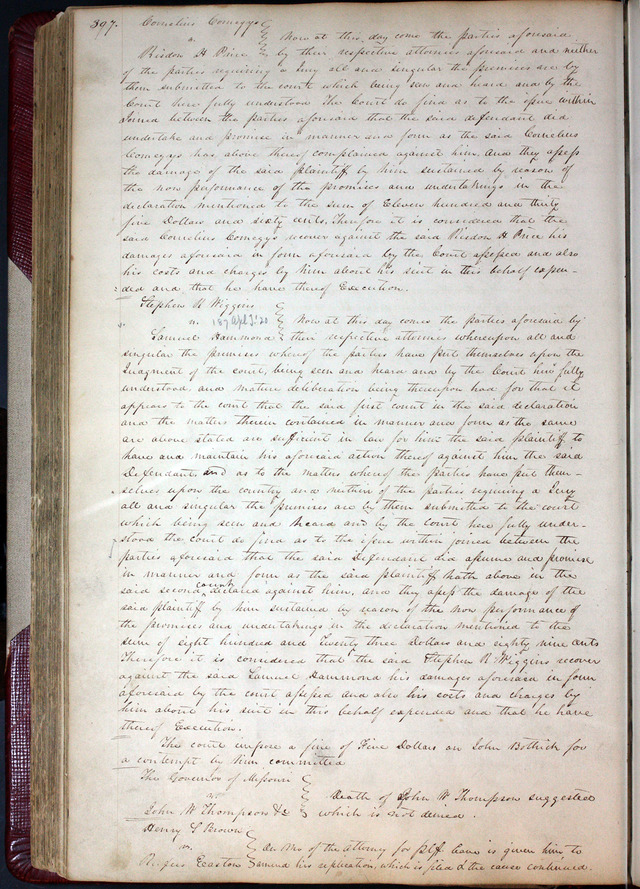 397. Cornelius Comegys
v. Now at this day come the parties aforesaid
Risdon H Price by their respective attornies aforesaid and neither
of the parties requiring a Jury all and singular the premises are by
them submitted to the court which being seen and heard and by the
Court here fully understood The Court do find as to the issue within
Joined between the parties aforesaid that the said defendant did
undertake and promise in manner and form as the said Cornelius
Comegys has above thereof complained against him, and they assess
the damage of the said plaintiff by him sustained by reason of
the non performance of the promises and undertakings in the
declaration mentioned to the sum of Eleven hundred and thirty
five Dollars and sixty cents, Therefore it is considered that the
said Cornelius Comegys recover against the said Risdon H Price his
damages aforesaid in form aforesaid by the Court assessed and also
his costs and charges by him about his suit in this behalf expen-
ded and that he have thereof Execution.
Stephen R Wiggins
v. 187 Apl 3d '20 Now at this day comes the parties aforesaid by
Samuel Hammond their respective attornies whereupon all and
singular the premises whereof the parties have put themselves upon the
Judgment of the court, being seen and heard and by the Court here fully
understood, and mature deliberation being thereupon had for that it
appears to the court that the said first count in the said declaration
and the matters therein contained in manner and form as the same
are above stated are sufficient in law for him the said plaintiff to
have and maintain his aforesaid action thereof against him the said
Defendant. And as to the matters whereof the parties have put them-
selves upon the country and neither of the parties requiring a Jury
all and singular the premises are by them submitted to the court
which being seen and heard and by the court here fully under-
stood the court do find as to the issue within joined between the
parties aforesaid that the said Defendant did assume and promise
in manner and form as the said plaintiff hath above in the
said second count declared against him, and they assess the damage of the
said plaintiff by him sustained by reason of the non performance of
the promises and undertakings in the declaration mentioned to the
sum of eight hundred and Twenty three Dollars and eighty nine cents
Therefore it is considered that the said Stephen R Wiggins recover
against the said Samuel Hammond his damages aforesaid in form
aforesaid by the court assessed and also his costs and charges by
him about his suit in this behalf expended and that he have
thereof Execution.
The court impose a fine of Five Dollars on John Bothick for
a contempt by him committed
The Governor of Missouri
v. Death of John W Thompson suggested
John W Thompson &c which is not denied.
Henry S Brown
v. On mo of the Attorney for plff. leave is given him to
Rufus Easton amend his replication, which is filed & the cause continued.